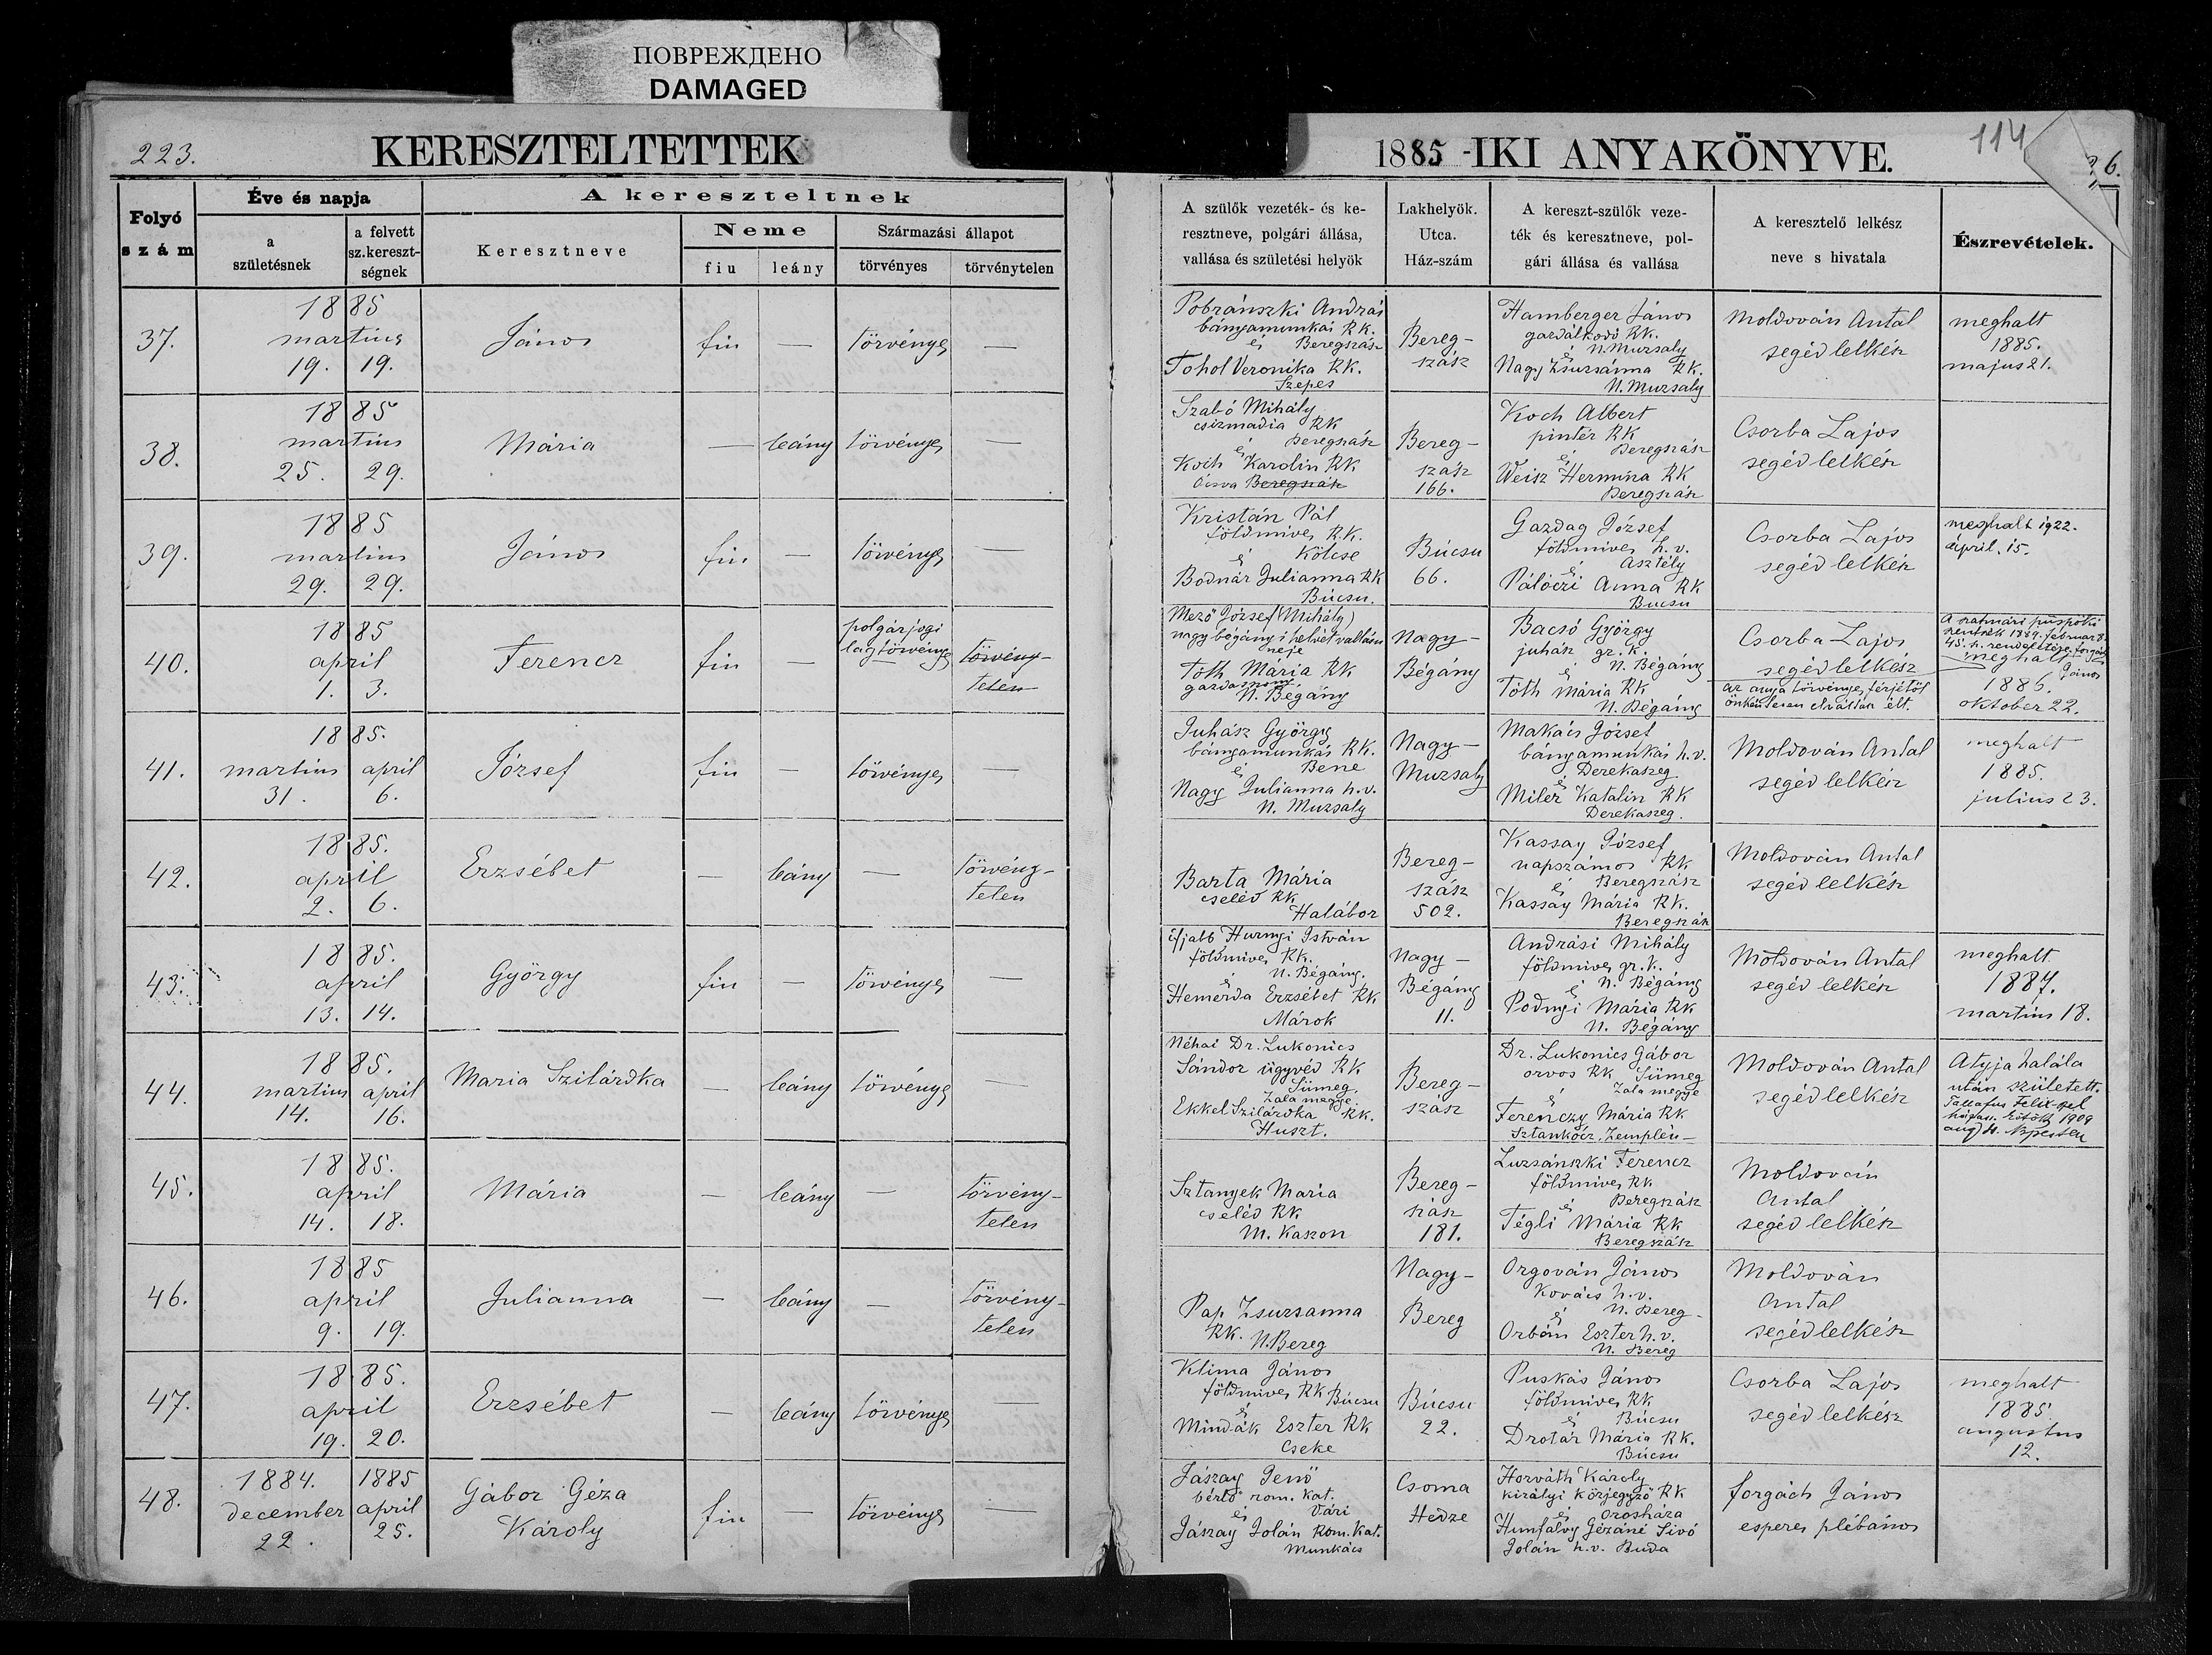 ПОВРЕЖДЕНО
DAMAGED
223.
KERESZTELTETTEK
1885 -IKI ANYAKÖNYVE.
114
36.
Folyó szám
Éve és napja
a születésnek
a felvett sz.kereszt-ségnek
A kereszteltnek
Keresztneve
Neme
fiu
leány
Származási állapot
törvényes
törvénytelen
A szülők vezeték- és ke-
resztneve, polgári állása,
vallása és születési helyök
Lakhelyök.
Utca.
Ház-szám
A kereszt-szülők veze-
ték és keresztneve, pol-
gári állása és vallása
A keresztelő lelkész
neve s hivatala
Észrevételek.
37.
1885
martius
19. 19.
János
fiu
—
törvényes
—
Pobránszki András
bányamunkás RK.
és Beregszász
Tohol Veronika RK.
Szepes
Bereg-
szász
Hamberger János
gazdálkodó RK.
N. Muzsaly
és
Nagy Zsuzsánna RK.
N. Muzsaly
Moldován Antal
segéd lelkész
meghalt
1885.
majus 21.
38.
1885
martius
25. 29.
Mária
—
leány
törvényes
—
Szabó Mihály
csizmadia RK
Beregszász
és
Koch Karolin RK
Beregszász
Bereg-
szász
166.
Koch Albert
pintér RK
Beregszász
és
Weisz Hermina RK
Beregszász
Csorba Lajos
segéd lelkész
39.
1885
martius
29. 29.
János
fiu
—
törvényes
—
Kristán Pál
földmives R.K.
és Kölcse
Bodnár Julianna RK
Búcsu.
Búcsu
66.
Gazdag József
földmives h.v.
és Asztély
Pálóczi Anna RK
Bucsu
Csorba Lajos
segéd lelkész
meghalt 1922.
április. 15.
40.
1885
april
1. 3.
Ferencz
fiu
—
polgárjogi
lag törvényes
törvény-
telen
Mező József (Mihály)
nagy bégányi helvét vallásu
neje
Tóth Mária RK
gazdasszony
N. Bégány
Nagy-
Bégány
Bacsó György
juhász gr. k.
és N. Bégány
Tóth Mária RK
N. Bégány
Csorba Lajos
segéd lelkész
az anya törvényes férjétől
önkéntesen elválltan élt.
A szatmári püspöki
szentszék 1889. februar 8.
45. h. rendeletére. Forgách
János
meghalt
1886.
oktober 22.
41.
1885.
martius april
31. 6.
József
fiu
—
törvényes
—
Juhász György
bányamunkás RK.
és Bene
Nagy Julianna h.v.
N. Muzsaly
Nagy-
Muzsaly
Makács József
bányamunkás h.v.
Derekaszeg
és
Miler Katalin RK
Derekaszeg.
Moldován Antal
segéd lelkész
meghalt
1885.
julius 23.
42.
1885.
april
2. 6.
Erzsébet
—
leány
—
törvény-
telen
Barta Mária
cseléd RK
Halábor
Bereg-
szász
502.
Kassay József
napszámos RK
és Beregszász
Kassay Mária RK.
Beregszász
Moldován Antal
segéd lelkész
43.
1885.
april
13. 14.
György
fiu
—
törvényes
—
ifjabb Hurnyi István
földmives RK.
és N. Bégány.
Hemerda Erzsébet RK
Márok
Nagy-
Bégány
11.
Andrási Mihály
földmives gr. k.
és N. Bégány
Podnyi Mária RK
N. Bégány
Moldován Antal
segéd lelkész
meghalt
1887.
martius 18.
44.
1885.
martius april
14. 16.
Maria Szilárdka
—
leány
törvényes
—
Néhai Dr. Lukonics
Sándor ügyvéd RK
Sümeg
Zala megye
Ekkel Szilárdka RK.
Huszt.
Bereg-
szász
Dr. Lukonics Gábor
orvos RK Sümeg
és Zala megye
Ferenczy Mária RK
Sztankócz, Zemplén
Moldován Antal
segéd lelkész
Atyja halála
után született.
Tallafus Felix-szel
házass. kötött 1909
aug
45.
1885.
april
14. 18.
Mária
—
leány
—
törvény-
telen
Sztanyek Maria
cseléd RK
M. Kaszon
Bereg-
szász
181.
Luzsánszki Ferencz
földmives RK
és Beregszász
Tégli Mária RK
Beregszász
Moldován
Antal
segéd lelkész
46.
1885
april
9. 19.
Julianna
—
leány
—
törvény-
telen
Pap Zsuzsanna
RK. N. Bereg
Nagy-
Bereg
Orgován János
kovács h.v.
és N. Bereg
Orbán Eszter h.v.
N. Bereg
Moldován
Antal
segéd lelkész
47.
1885.
april
19. 20.
Erzsébet
—
leány
törvényes
—
Klima János
földmives RK Búcsu
és
Mindák Eszter RK
Cseke
Búcsu
22.
Puskás János
földmives RK
és Búcsu
Drotár Mária RK.
Búcsu
Csorba Lajos
segéd lelkész
meghalt
1885.
augustus
12.
48.
1884. 1885
december april
22. 25.
Gábor Géza
Károly
fiu
—
törvényes
—
Jászay Jenő
bérlő rom. kat.
és Vári
Jászay Jolán Rom. Kat.
Munkács
Csoma
Hedze
Horváth Károly
királyi közjegyző RK
és Orosháza
Hunfalvy Gézáné Sivó
Jolán h.v. Buda
Forgách János
esperes plébános